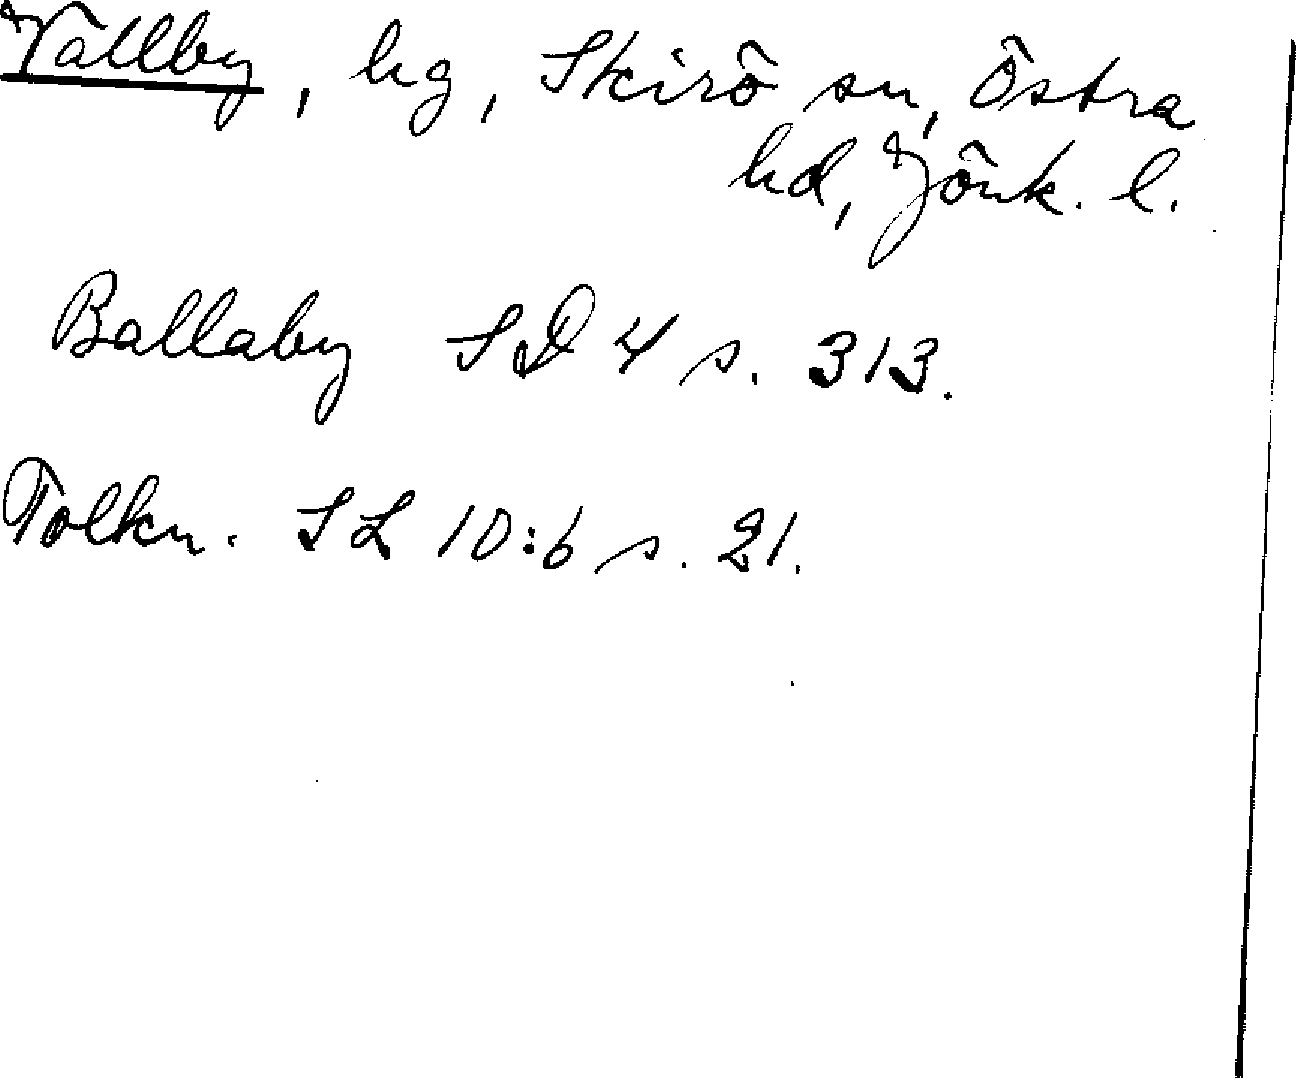 Vällby, hg, Skirö sn, Östra
hd, Jönk. l.
Ballaby SD 4 s. 313.
Tolkn. SL 10:6 s. 21.